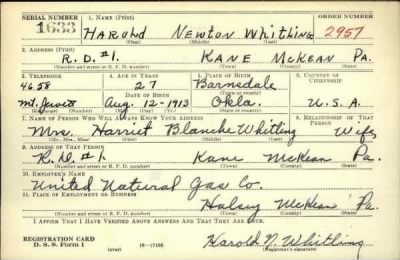 SERIAL NUMBER 1. NAME (Print) ORDER NUMBER
1633 HAROLD NEWTON WHITLING 2957
(First) (Middle) (Last)
2. ADDRESS (Print)
R.D.#1. KANE McKEAN PA.
(Number and street or R. F. D. number) (Town) (County) (State)
3. TELEPHONE 4. AGE IN YEARS 5. PLACE OF BIRTH 6. COUNTRY OF CITIZENSHIP
4658 27 Barnsdale
DATE OF BIRTH (Town or county)
Mt. Jewett Aug. 12-1913 Okla. U.S.A.
(Exchange) (Number) (Mo.) (Day) (Yr.) (State or country)
7. NAME OF PERSON WHO WILL ALWAYS KNOW YOUR ADDRESS 8. RELATIONSHIP OF THAT PERSON
Mrs. Harriet Blanche Whitling Wife
(Mr., Mrs., Miss) (First) (Middle) (Last)
9. ADDRESS OF THAT PERSON
R.D.#1. Kane McKean Pa.
(Number and street or R. F. D. number) (Town) (County) (State)
10. EMPLOYER'S NAME
United Natural Gas Co.
11. PLACE OF EMPLOYMENT OR BUSINESS
Halsey McKean Pa.
(Number and street or R. F. D. number) (Town) (County) (State)
I AFFIRM THAT I HAVE VERIFIED ABOVE ANSWERS AND THAT THEY ARE TRUE.
REGISTRATION CARD
D. S. S. Form 1 (over) 16-17105 Harold N. Whitling
(Registrant's signature)